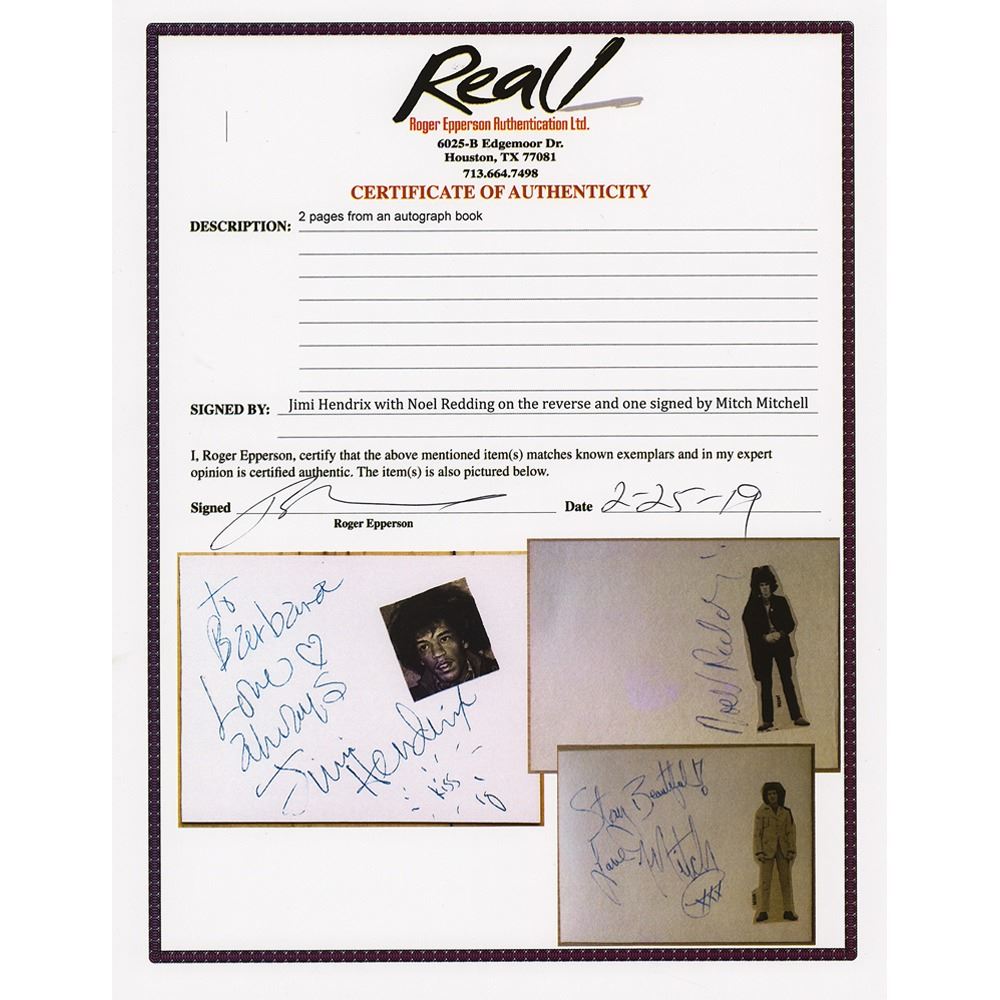 Real!
Roger Epperson Authentication Ltd.
6025-B Edgemoor Dr.
Houston, TX 77081
713.664.7498
CERTIFICATE OF AUTHENTICITY
DESCRIPTION: 2 pages from an autograph book
SIGNED BY: Jimi Hendrix with Noel Redding on the reverse and one signed by Mitch Mitchell
I, Roger Epperson, certify that the above mentioned item(s) matches known exemplars and in my expert
opinion is certified authentic. The item(s) is also pictured below.
Signed
Date 2-25-19
Roger Epperson
to
Barbara
Love
always
Jimi Hendrix
kiss
Noel Redding
Stay Beautiful!
Love Mitch
xxx